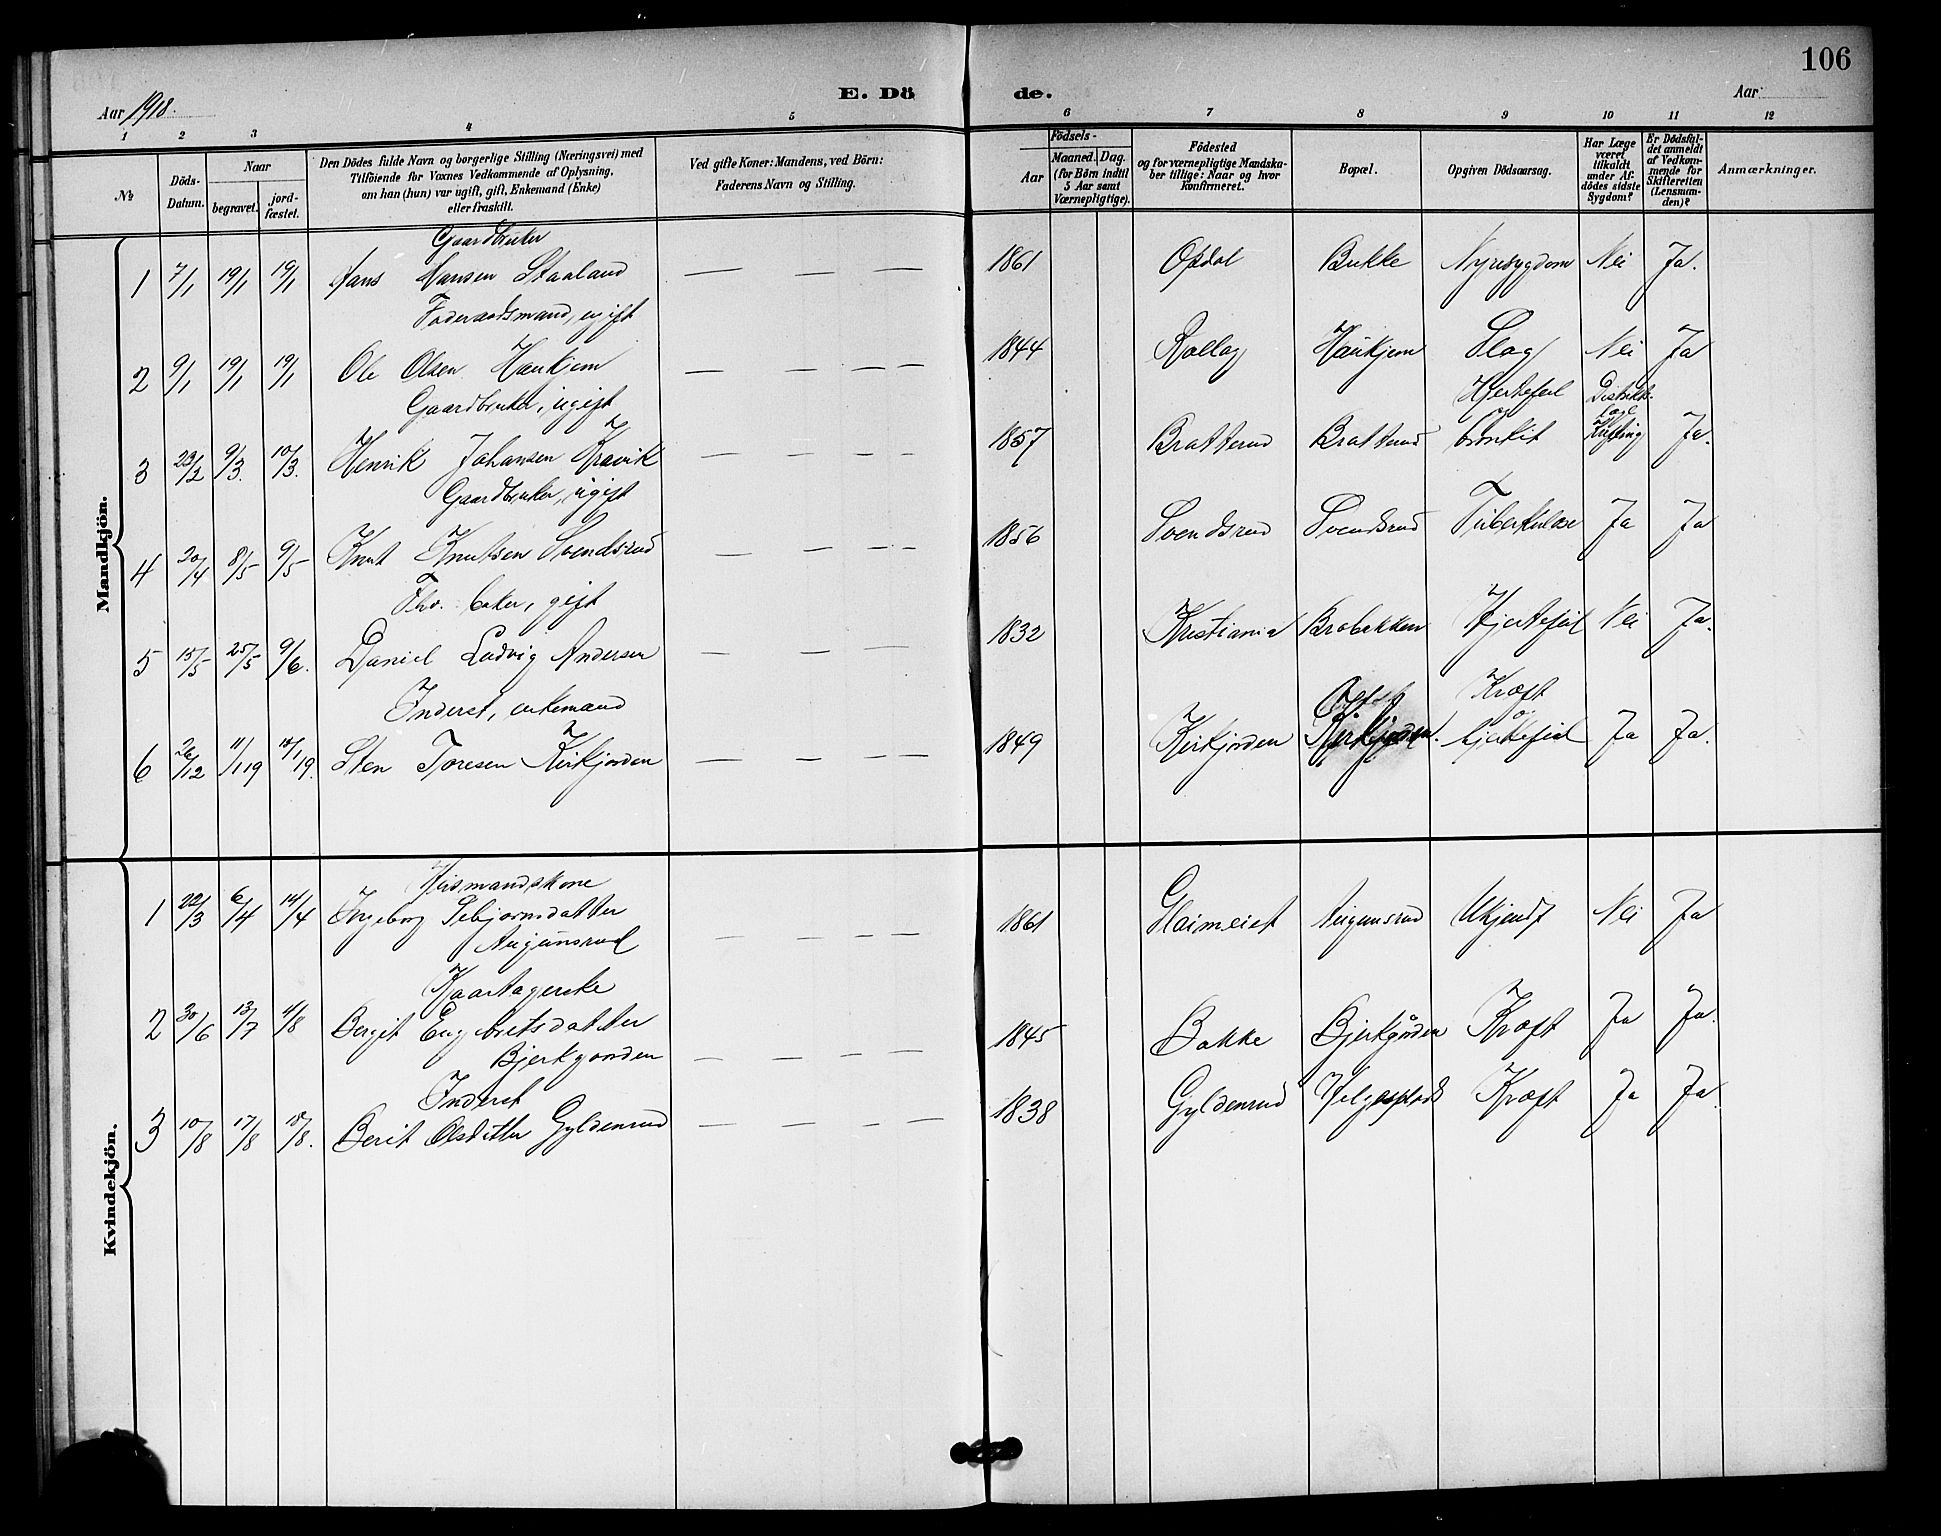 106
E. Döde.
Aar 1918.
Aar
1 2 3 4 5 6 7 8 9 10 11 12
№
Döds-Datum.
Naar
begravet.
jord-fæstet.
Den Dödes fulde Navn og borgerlige Stilling (Næringsvei) med
Tilföiende for Voxnes Vedkommende af Oplysning,
om han (hun) var ugift, gift, Enkemand (Enke)
eller fraskilt.
Ved gifte Koner: Mandens, ved Börn:
Faderens Navn og Stilling.
Födsels-
Aar
Maaned. Dag.
(for Börn indtil
5 Aar samt
Værnepligtige).
Födested
og for værnepligtige Mandska-
ber tillige: Naar og hvor
konfirmeret.
Bopæl.
Opgiven Dödsaarsag.
Har Læge
været
tilkaldt
under Af-
dödes sidste
Sygdom?
Er Dödsfal-
det anmeldt
af Vedkom-
mende for
Skifteretten
(Lensman-
den)?
Anmærkninger.
Mandkjön.
Gaardbruker
1 7/1 19/1 19/1 Hans Hansen Staaland — — — 1861 Opdal Bukke Nyresygdom Nei Ja.
Föderaadsmand, ugift
2 9/1 19/1 19/1 Ole Olsen Haukjem — — — — 1844 Rollag Haukjem Slag Nei Ja
Gaardbruker, ugift Hjertefeil Distrikts-
3 23/2 9/3. 10/3. Henrik Johansen Kravik — — — — 1857 Bratterud Bratterud bronkit Ja.
Gaardbruker, ugift
4 20/4 8/5 9/5 Knut Knutsen Svendsrud — — — — 1856 Svendsrud Svendsrud Tuberkulose Ja Ja
Fhv. baker, gift
5 15/5 25/5 9/6. Daniel Ludvig Andersen — — — 1832 Kristiania Brobakken Hjertefeil Nei Ja.
Inderst, enkemand Kræft
6 26/12 11/1 19 18/1 19. Sten Toresen Kirkjorden — — — — 1849 Kirkjorden Kirkjorden. hjertefeil Ja Ja.
Kvindekjön.
Husmandskone
1 22/3 6/4 14/4 Ingeborg Sebjornsdatter 1861 Glaimeiet Augunsrud Ukjendt Nei Ja
Augunsrud — — — —
Kaartagerske
2 30/6 13/7 11/8 Bergit Engebretsdatter 1845 Bakke Bjerkgården Kræft Ja Ja.
Bjerkgorden — — — —
Inderst
3 10/8 17/8 18/8. Berit Olsdatter Gyldenrud — — — — 1838 Gyldenrud Helgesplads Kræft Ja Ja